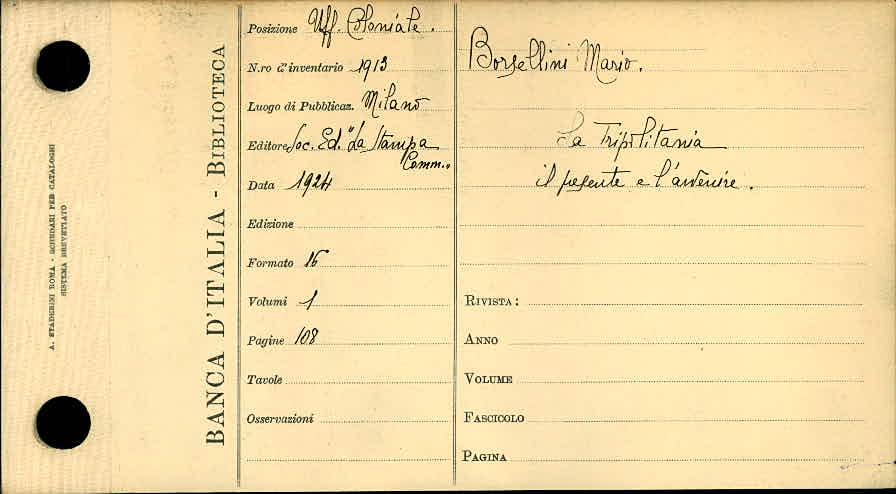 A. STADERINI ROMA - SCHEDARI PER CATALOGHI
SISTEMA BREVETTATO
BANCA D'ITALIA - BIBLIOTECA
Posizione Uff. Coloniale.
N.ro d'inventario 1913
Luogo di Pubblicaz. Milano
Editore Soc. Ed. "La Stampa
Comm.„
Data 1924
Edizione
Formato 16
Volumi 1
Pagine 108
Tavole
Osservazioni
Borsellini Mario.
La Tripolitania
il presente e l'avvenire.
RIVISTA:
ANNO
VOLUME
FASCICOLO
PAGINA